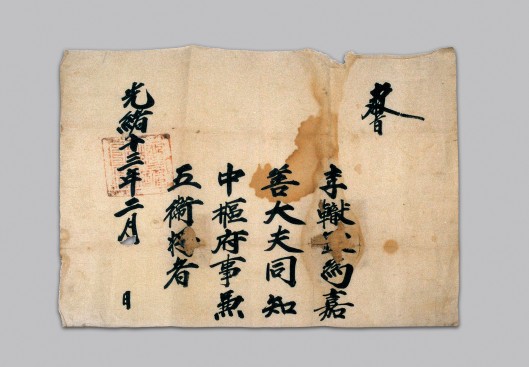 敎旨
李轍爲嘉
善大夫同知
中樞府事兼
五衛將者
光緖十三年二月 日